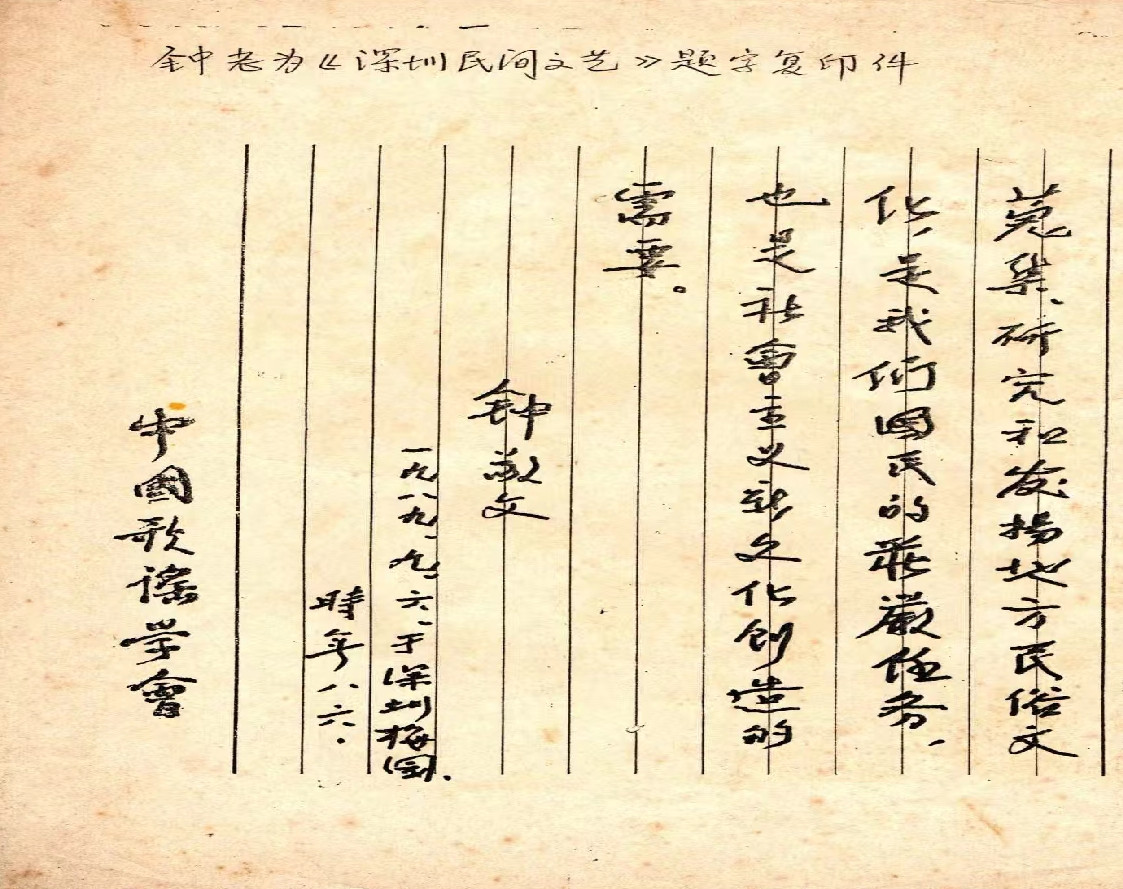 钟老为《深圳民间文艺》题字复印件
蒐集、研究和发扬地方民俗文
化,是我们国民的莊严任务,
也是社會主义新文化创造的
需要。
钟敬文
一九八九、九、六、于深圳梅园.
時年八六.
中國歌謠学會